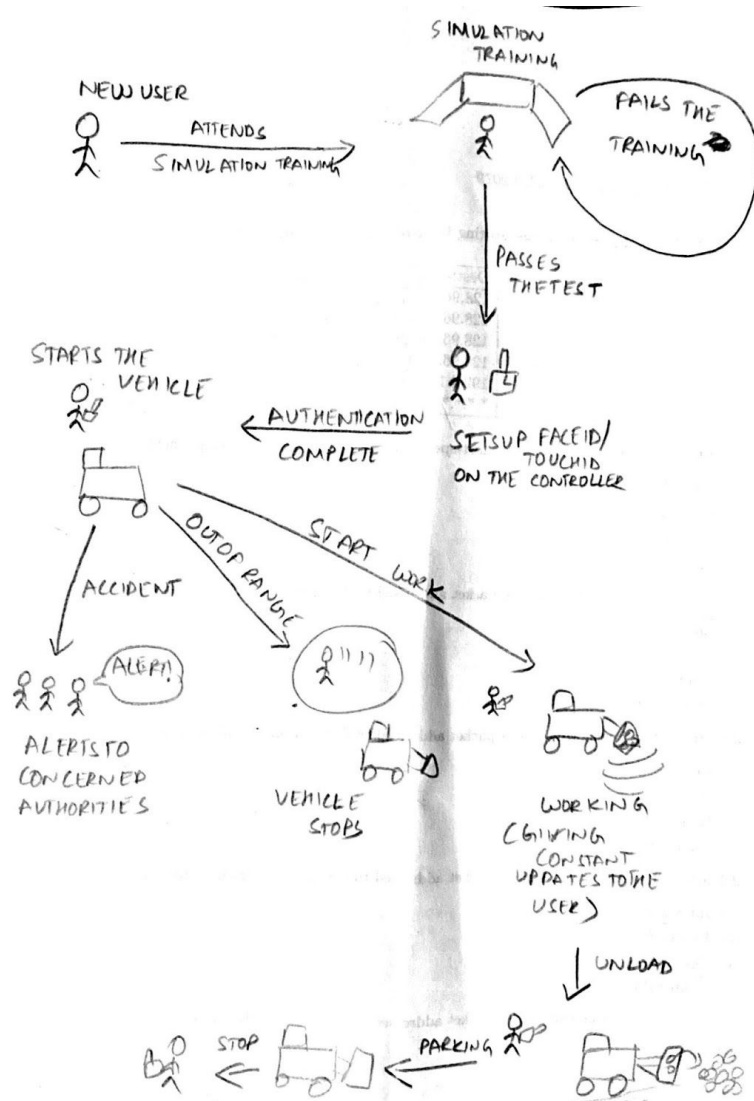 SIMULATION
TRAINING
NEW USER
ATTENDS
SIMULATION TRAINING
FAILS THE
TRAINING
PASSES
THE TEST
STARTS THE
VEHICLE
AUTHENTICATION
COMPLETE
SETS UP FACEID/
TOUCHID
ON THE CONTROLLER
ACCIDENT
OUT OF RANGE
START WORK
ALERT!
ALERTS TO
CONCERNED
AUTHORITIES
VEHICLE
STOPS
WORKING
(GIVING
CONSTANT
UPDATES TO THE
USER)
UNLOAD
PARKING
STOP